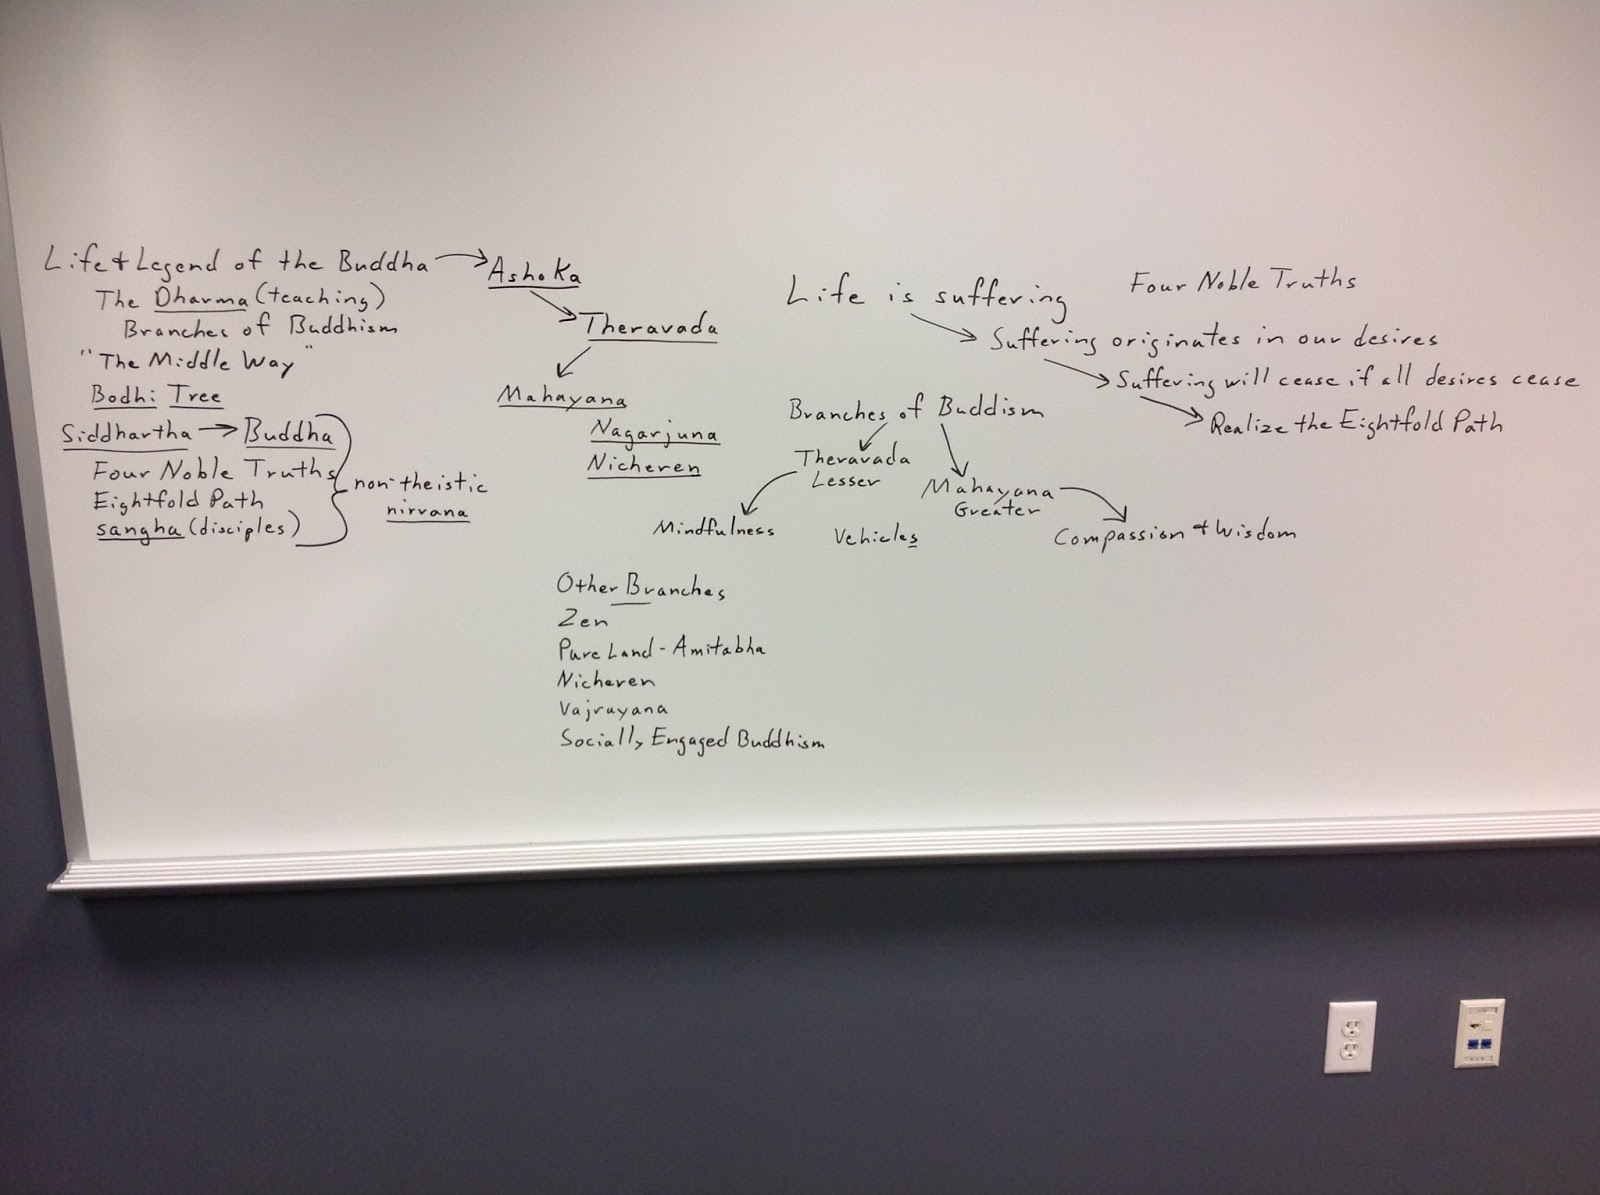 Life & Legend of the Buddha → Ashoka
The Dharma (teaching)
Branches of Buddhism
"The Middle Way"
Bodhi Tree
Siddhartha → Buddha
Four Noble Truths
Eightfold Path
sangha (disciples)
non-theistic
nirvana
Theravada
Mahayana
Nagarjuna
Nicheren
Four Noble Truths
Life is suffering
Suffering originates in our desires
Suffering will cease if all desires cease
Realize the Eightfold Path
Branches of Buddism
Theravada
Lesser
Mahayana
Greater
Mindfulness
Vehicles
Compassion & Wisdom
Other Branches
Zen
Pure Land - Amitabha
Nicheren
Vajrayana
Socially Engaged Buddhism